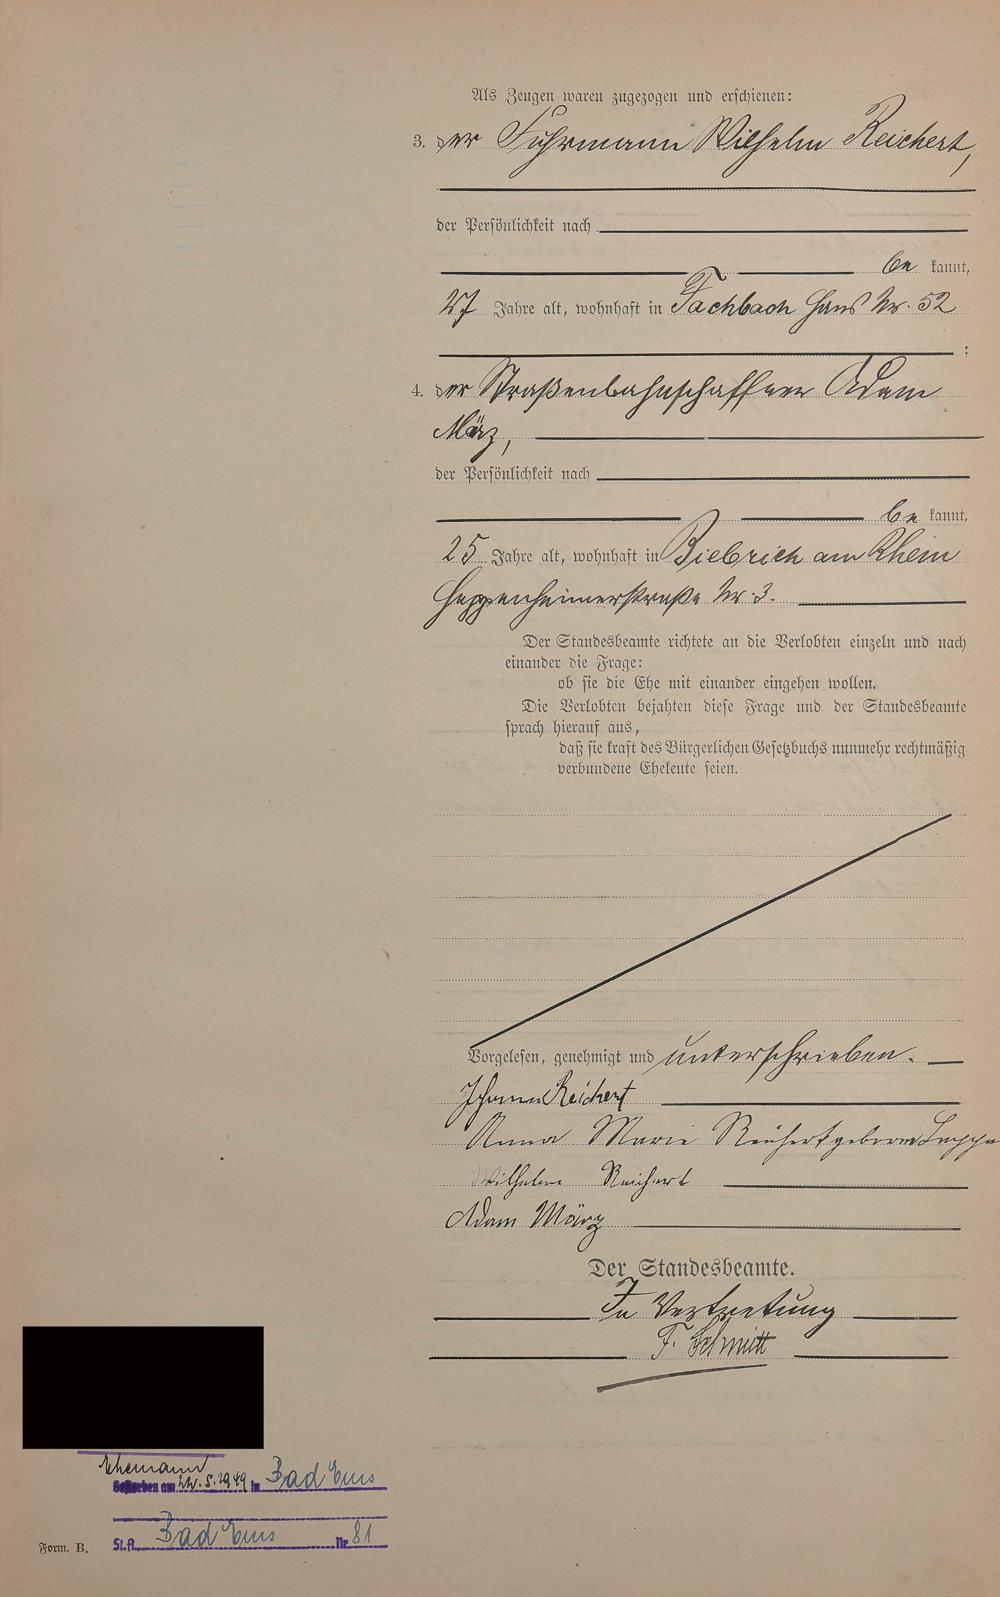 Als Zeugen waren zugezogen und erschienen:
3. der Fuhrmann Wilhelm Reichert,
der Persönlichkeit nach
be kannt,
27 Jahre alt, wohnhaft in Fachbach Haus Nr. 52
;
4. der Straßenbahnschaffner Adam
März,
der Persönlichkeit nach
be kannt,
25 Jahre alt, wohnhaft in Biebrich am Rhein
Heppenheimerstraße Nr. 3.
Der Standesbeamte richtete an die Verlobten einzeln und nach
einander die Frage:
ob sie die Ehe mit einander eingehen wollen.
Die Verlobten bejahten diese Frage und der Standesbeamte
sprach hierauf aus,
daß sie kraft des Bürgerlichen Gesetzbuchs nunmehr rechtmäßig
verbundene Eheleute seien.
Vorgelesen, genehmigt und unterschrieben.
Johann Reichert
Anna Marie Reichert geborene
Wilhelm Reichert
Adam März
Der Standesbeamte.
In Vertretung
F. Schmitt
Ehemann
Gestorben am 22.5.1949 in Bad Ems
St.A. Bad Ems Nr 81
Form. B.